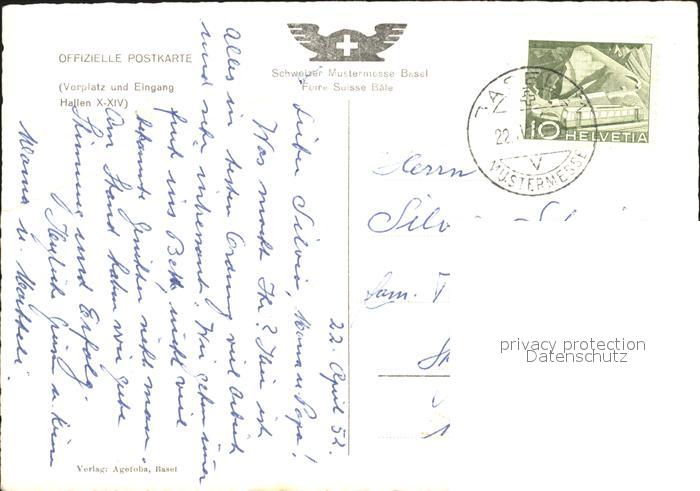 OFFIZIELLE POSTKARTE
(Vorplatz und Eingang
Hallen X-XIV)
Schweizer Mustermesse Basel
Foire Suisse Bâle
22. April 52.
Lieber Silvio, Mama u. Papa!
Was macht Ihr? Hier ist
Alles in bester Ordnung viel Arbeit
und sehr interessant. Wir gehen immer
früh ins Bett, nicht viel
bekannte Gesichter sieht man.
Am Stand haben wir gute
Stimmung und Erfolg.
Herzliche Grüsse u. Küsse
Mama u.
Herrn
Fam.
BASEL
22.
V
MUSTERMESSE
10 HELVETIA
privacy protection
Datenschutz
Verlag: Agefoba, Basel